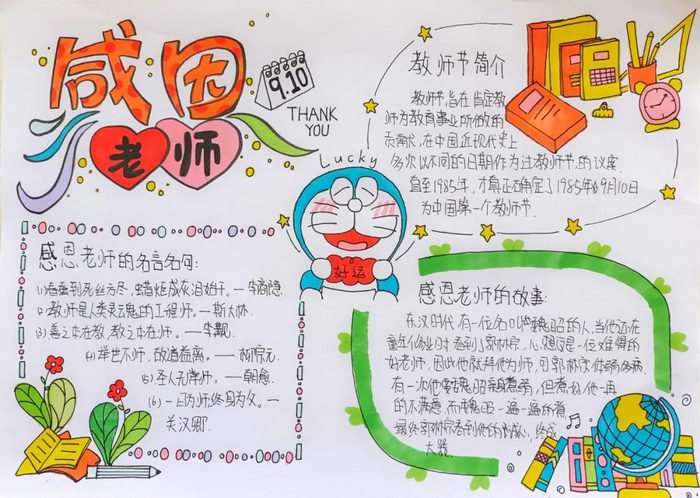 感恩
老师
9.10
THANK
YOU
Lucky
好运
教师节简介
教师节,旨在肯定教
师为教育事业所做的
贡献,在中国近现代史上
多次以不同的日期作为过教师节的议案
直至1985年,才真正确定了1985年9月10日
为中国第一个教师节.
感恩老师的名言名句:
(1)春蚕到死丝方尽,蜡炬成灰泪始干。—李商隐.
(2)教师是人类灵魂的工程师。—斯大林.
(3)善之本在教,教之本在师。—李觏.
(4)举世不师,故道益离。—柳宗元.
(5)圣人无常师。—韩愈.
(6)一日为师终身为父。—
关汉卿.
感恩老师的故事:
东汉时代,有一位名叫魏昭的人,当他还在
童年 时看到郭林宗,心想这是一位难得的
好老师,因此他就拜他为师,可郭林宗体弱多病,
有一次他 魏昭 ,但惹和他一再
的不满意,而魏昭一遍一遍
最终郭林宗看到他的诚心,终成
大器.